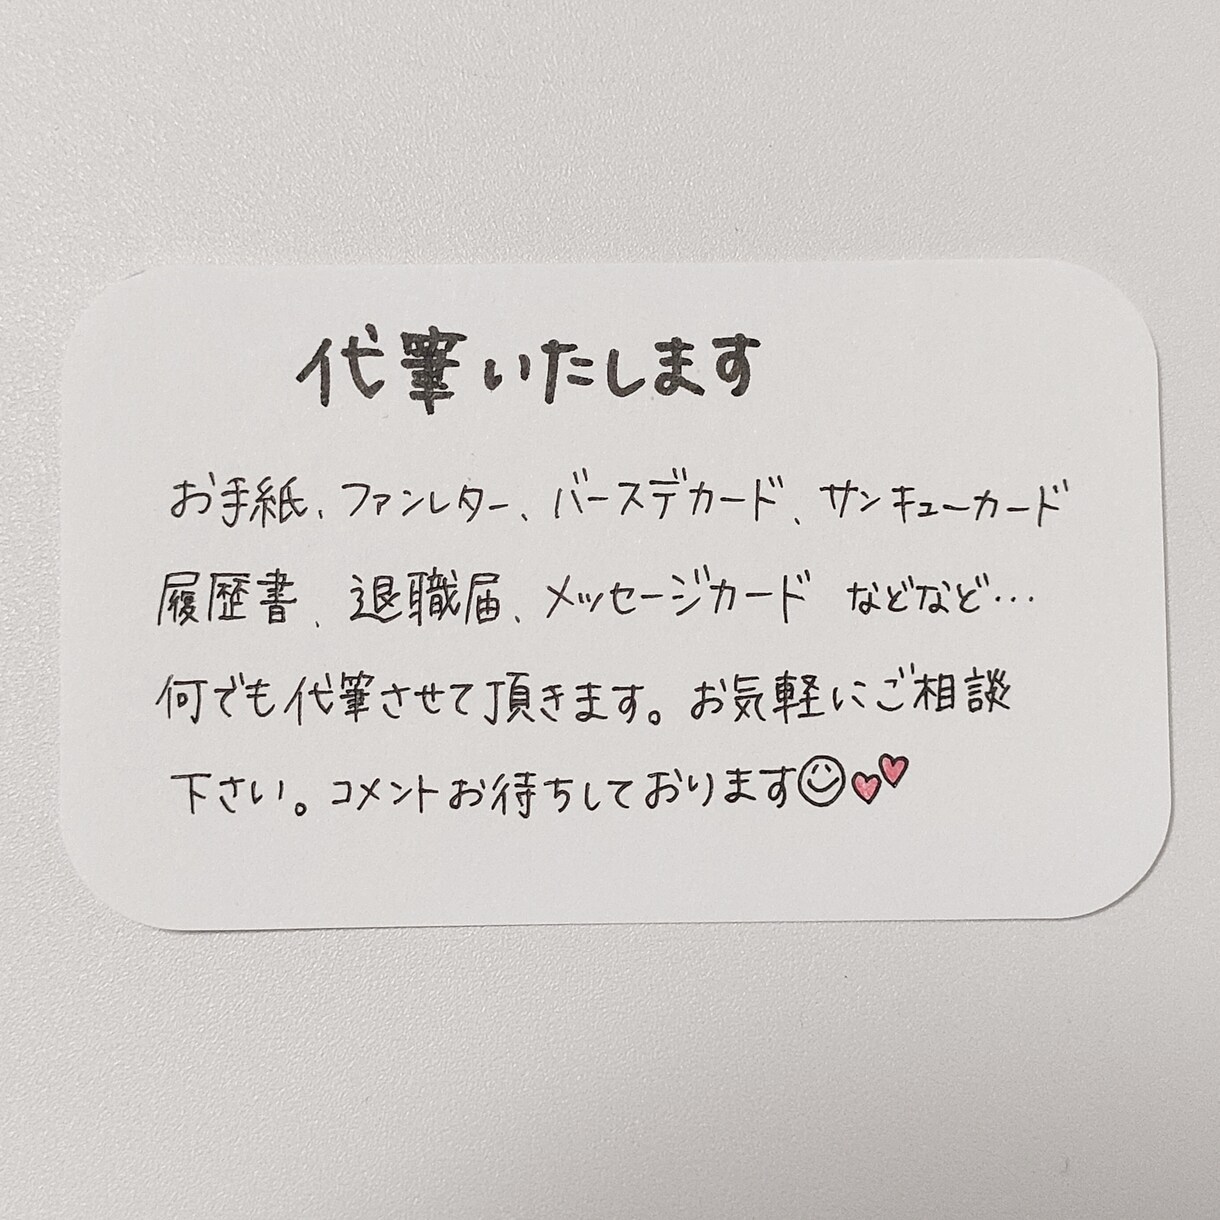 代筆いたします
お手紙、ファンレター、バースデカード、サンキューカード
履歴書、退職届、メッセージカード などなど…
何でも代筆させて頂きます。お気軽にご相談
下さい。コメントお待ちしております☺💕